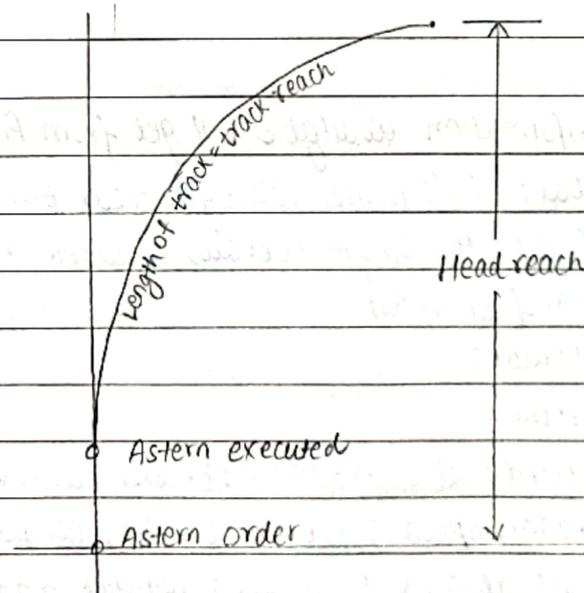 Length of track = track reach
Head reach
Astern executed
Astern order